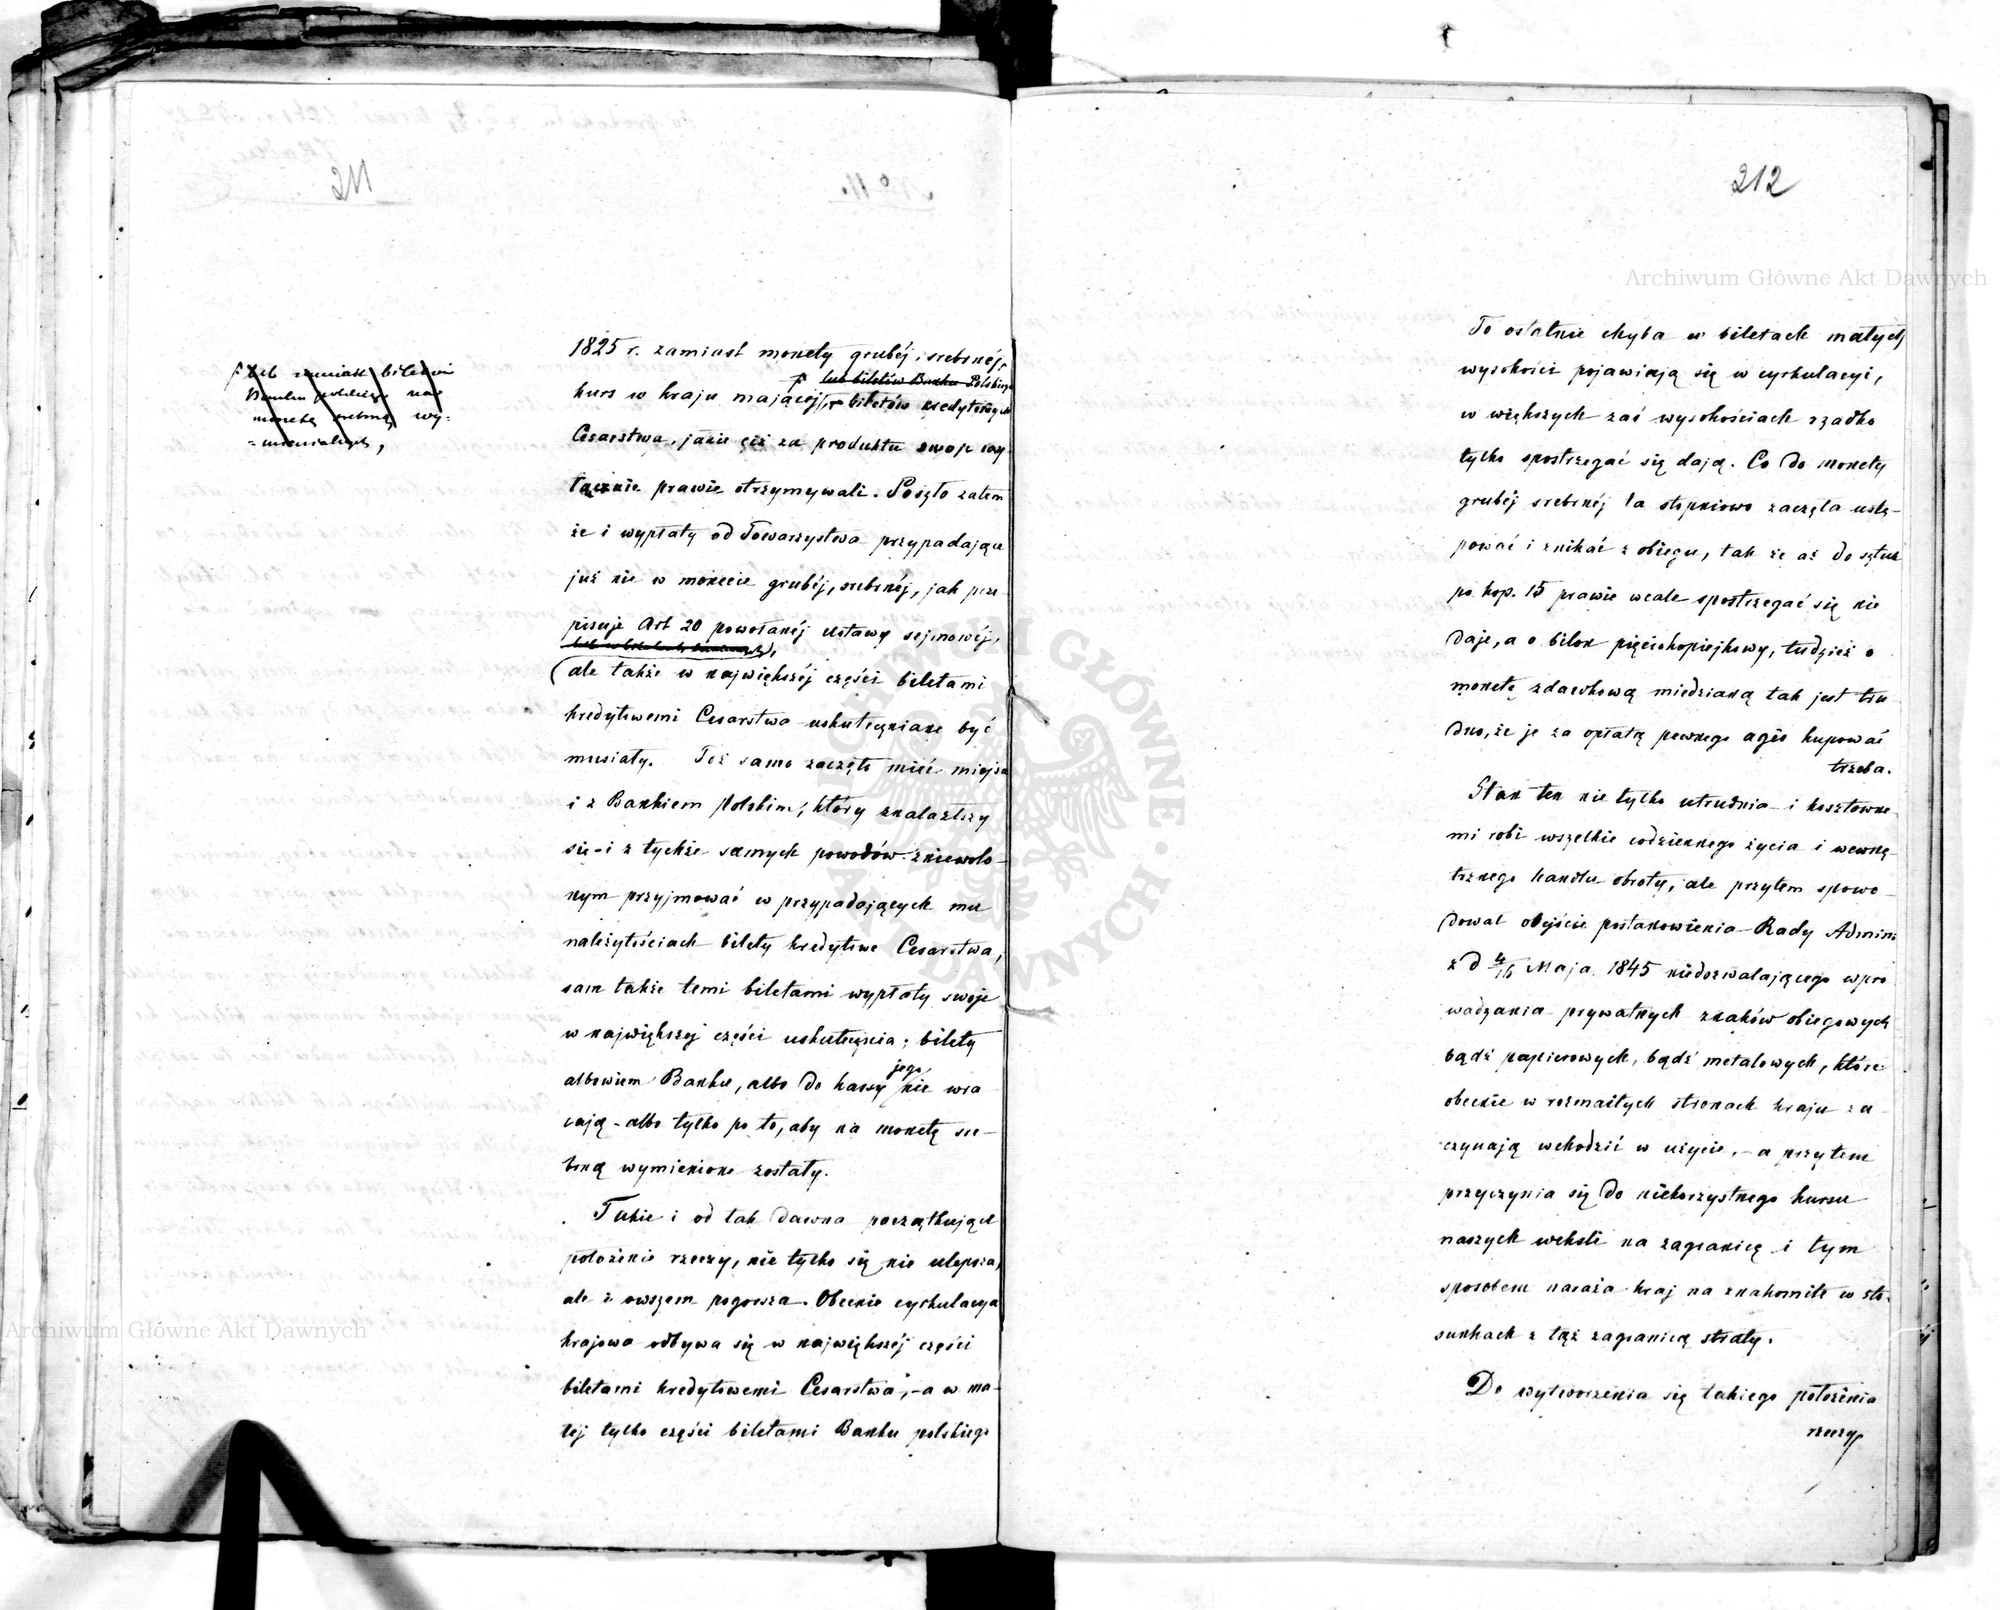 212
lub zamiast biletów
Banku polskiego na
monetę srebrną wy=
=mienialnych,
1825 r. zamiast monety grubéj, srebrnéj,
lub biletów Banku Polskiego
kurs w kraju mającéj, biletów kredytowych
Cesarstwa, jakie też za produkta swoje wy-
łącznie prawie otrzymywali. Poszło zatem
że i wypłaty od Towarzystwa przypadające
już nie w monecie grubéj, srebrnéj, jak prze-
pisuje Art 20 powołanéj ustawy sejmowéj,
ale także w największéj części biletami
kredytowemi Cesarstwa uskuteczniane być
musiały. Toż samo zaczęło mieć miejsce
i z Bankiem Polskim, który znalazłszy
się i z tychże samych powodów zniewolo-
nym przyjmować w przypadających mu
należytościach bilety kredytowe Cesarstwa,
sam także temi biletami wypłaty swoje
w największej części uskutecznia; bilety
jego
albowiem Banku, albo do kassy nie wra
cają - albo tylko po to, aby na monetę sre-
brną wymienione zostały.
Takie i od tak dawna początkujące
położenie rzeczy, nie tylko się nie ulepsza,
ale i owszem pogorsza. Obecnie cyrkulacya
krajowa odbywa się w największéj części
biletami kredytowemi Cesarstwa, - a w ma-
łéj tylko części biletami Banku polskiego
To ostatnie chyba w biletach małych
wysokości pojawiają się w cyrkulacyi,
w większych zaś wysokościach rzadko
tylko spostrzegać się dają. Co do monety
grubéj srebrnéj ta stopniowo zaczęła ustę-
pować i znikać z obiegu, tak że aż do sztuk
po kop. 15 prawie wcale spostrzegać się nie
daje, a o bilon pięciokopiejkowy, tudzież o
monetę zdawkową miedzianą tak jest tru
dno, że je za opłatą pewnego agio kupować
trzeba.
Stan ten nie tylko utrudnia i kosztowne-
mi robi wszelkie codziennego życia i wewnę-
trznego handlu obroty, ale przytem spowo-
dował obejście postanowienia Rady Admini
z d 4/16 Maja 1845 niedozwalającego wpro
wadzania prywatnych znaków obiegowych
bądź papierowych, bądź metalowych, które
obecnie w rozmaitych stronach kraju za-
czynają wchodzić w użycie, - a przytem
przyczynia się do niekorzystnego kursu
naszych weksli na zagranicę i tym
sposobem naraża kraj na znakomite w sto-
sunkach z tąż zagranicą straty.
Do wytworzenia się takiego położenia
rzeczy
Archiwum Główne Akt Dawnych
Archiwum Główne Akt Dawnych
ARCHIWUM GŁÓWNE AKT DAWNYCH